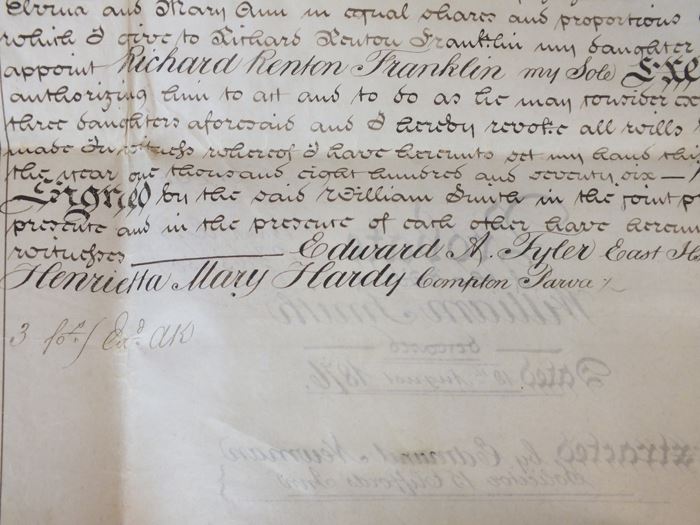 and Mary Ann in equal shares and proportions
which I give to Richard Renton Franklin my daughter
appoint Richard Renton Franklin my Sole
authorizing him to act and to do as he may consider
three daughters aforesaid and I hereby revoke all wills
made In witness whereof I have hereunto set my hand this
the year one thousand eight hundred and seventy six —
Signed by the said William Smith in the joint
presence and in the presence of each other have
witnesses Edward A. Tyler East
Henrietta Mary Hardy Compton Parva
3 fos. Exd. AK
William Smith
deceased
Dated August 1876.
Extracted by Edmund Newman
Solicitor 13 Cliffords Inn